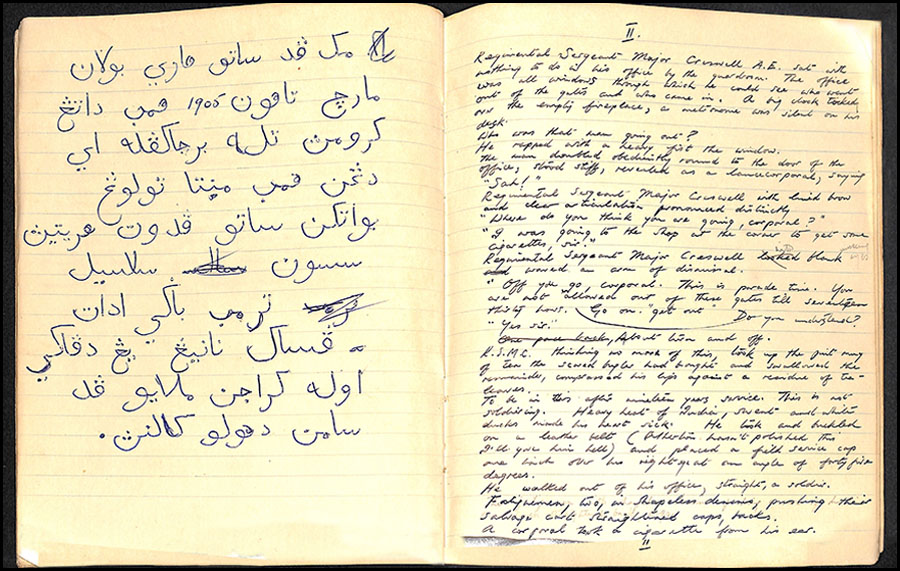 مک ڤد ساتو هاري بولن
مارچ تاهون 1905 همب داتڠ
کرومن تله برچاکڤله اي
دڠن همب مينتا تولوڠ
بواتکن ساتو ڤدوت
سسون سلسيل
ترمب باڬي ادات
ڤساک نانيڠ يڠ دڤاکي
اوله کراجن ملايو ڤد
سامن دهولو کالنن.
II.
Regimental Sergeant Major Creswell A.E. sat with
nothing to do in his office by the guardroom. The office
was all windows through which he could see who went
out of the gates and who came in. A big clock tocked
over the empty fireplace, a metronome was silent on his
desk.
Who was that man going out?
He rapped with a heavy fist the window.
The man doubled obediently round to the door of the
office, stood stiff, revealed as a lance-corporal, saying
"Sah!"
Regimental Sergeant Major Creswell with knit brow
and clear articulation pronounced distinctly
"Where do you think you are going, corporal?"
"I was going to the shop at the corner to get some
cigarettes, sir."
Regimental Sergeant Major Creswell looked blank
and waved an arm of dismissal.
"Off you go, corporal. This is parade time. You
are not allowed out of these gates till seventeen
thirty hours. Go on. get out Do you understand?
"Yes sir."
One pace back, About turn and off.
R.S.M.C. thinking no more of this, took up the pint mug
of tea the bugler had brought and swallowed the
remainder, compressed his lips against a residue of tea-
leaves.
To be in this after nineteen years service. This is not
soldiering. Heavy heat of India, sweat and white
ducks made his heart sick. He took and buckled
on a leather belt ( hasn't polished this
I'll give him hell) and placed a service cap
one inch over his right eye at an angle of forty five
degrees.
He walked out of his office, straight, a soldier.
Fatiguemen, two, in shapeless denims, pushing their
salvage cart straightened caps, backs.
A corporal took a cigarette from his ear.
II